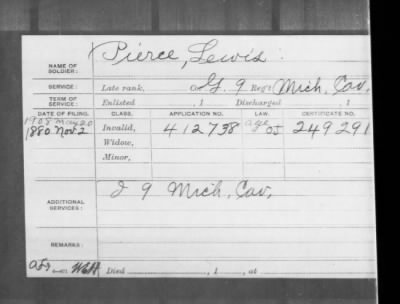 NAME OF SOLDIER: Pierce, Lewis.
SERVICE: Late rank, Co. G. 9 Reg't Mich. Cav.
TERM OF SERVICE: Enlisted , 1 Discharged , 1
DATE OF FILING. CLASS. APPLICATION NO. LAW. CERTIFICATE NO.
1908 May 20 age
1880 Nov. 2 Invalid, 412738 OJ 249291
Widow,
Minor,
ADDITIONAL SERVICES: I 9 Mich. Cav.
REMARKS:
Died , 1 , at